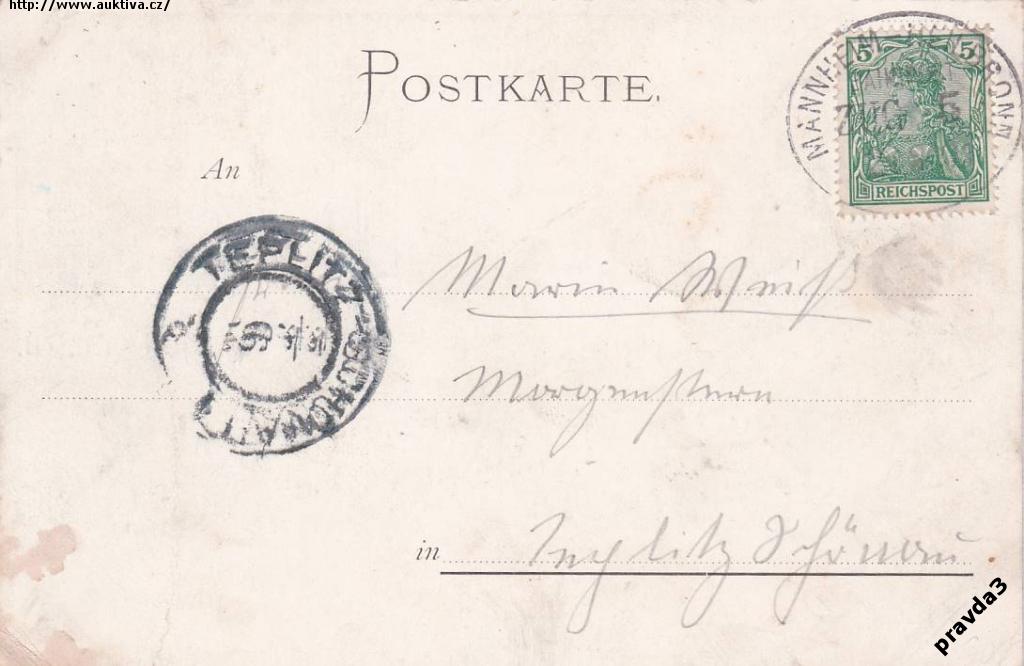 http://www.auktiva.cz/
POSTKARTE.
5 5
MANNHEIM
ZUG 5
REICHSPOST
An
TEPLITZ-SCHÖNAU
Marie Weiß
Morgenstern
in Teplitz Schönau
pravda3